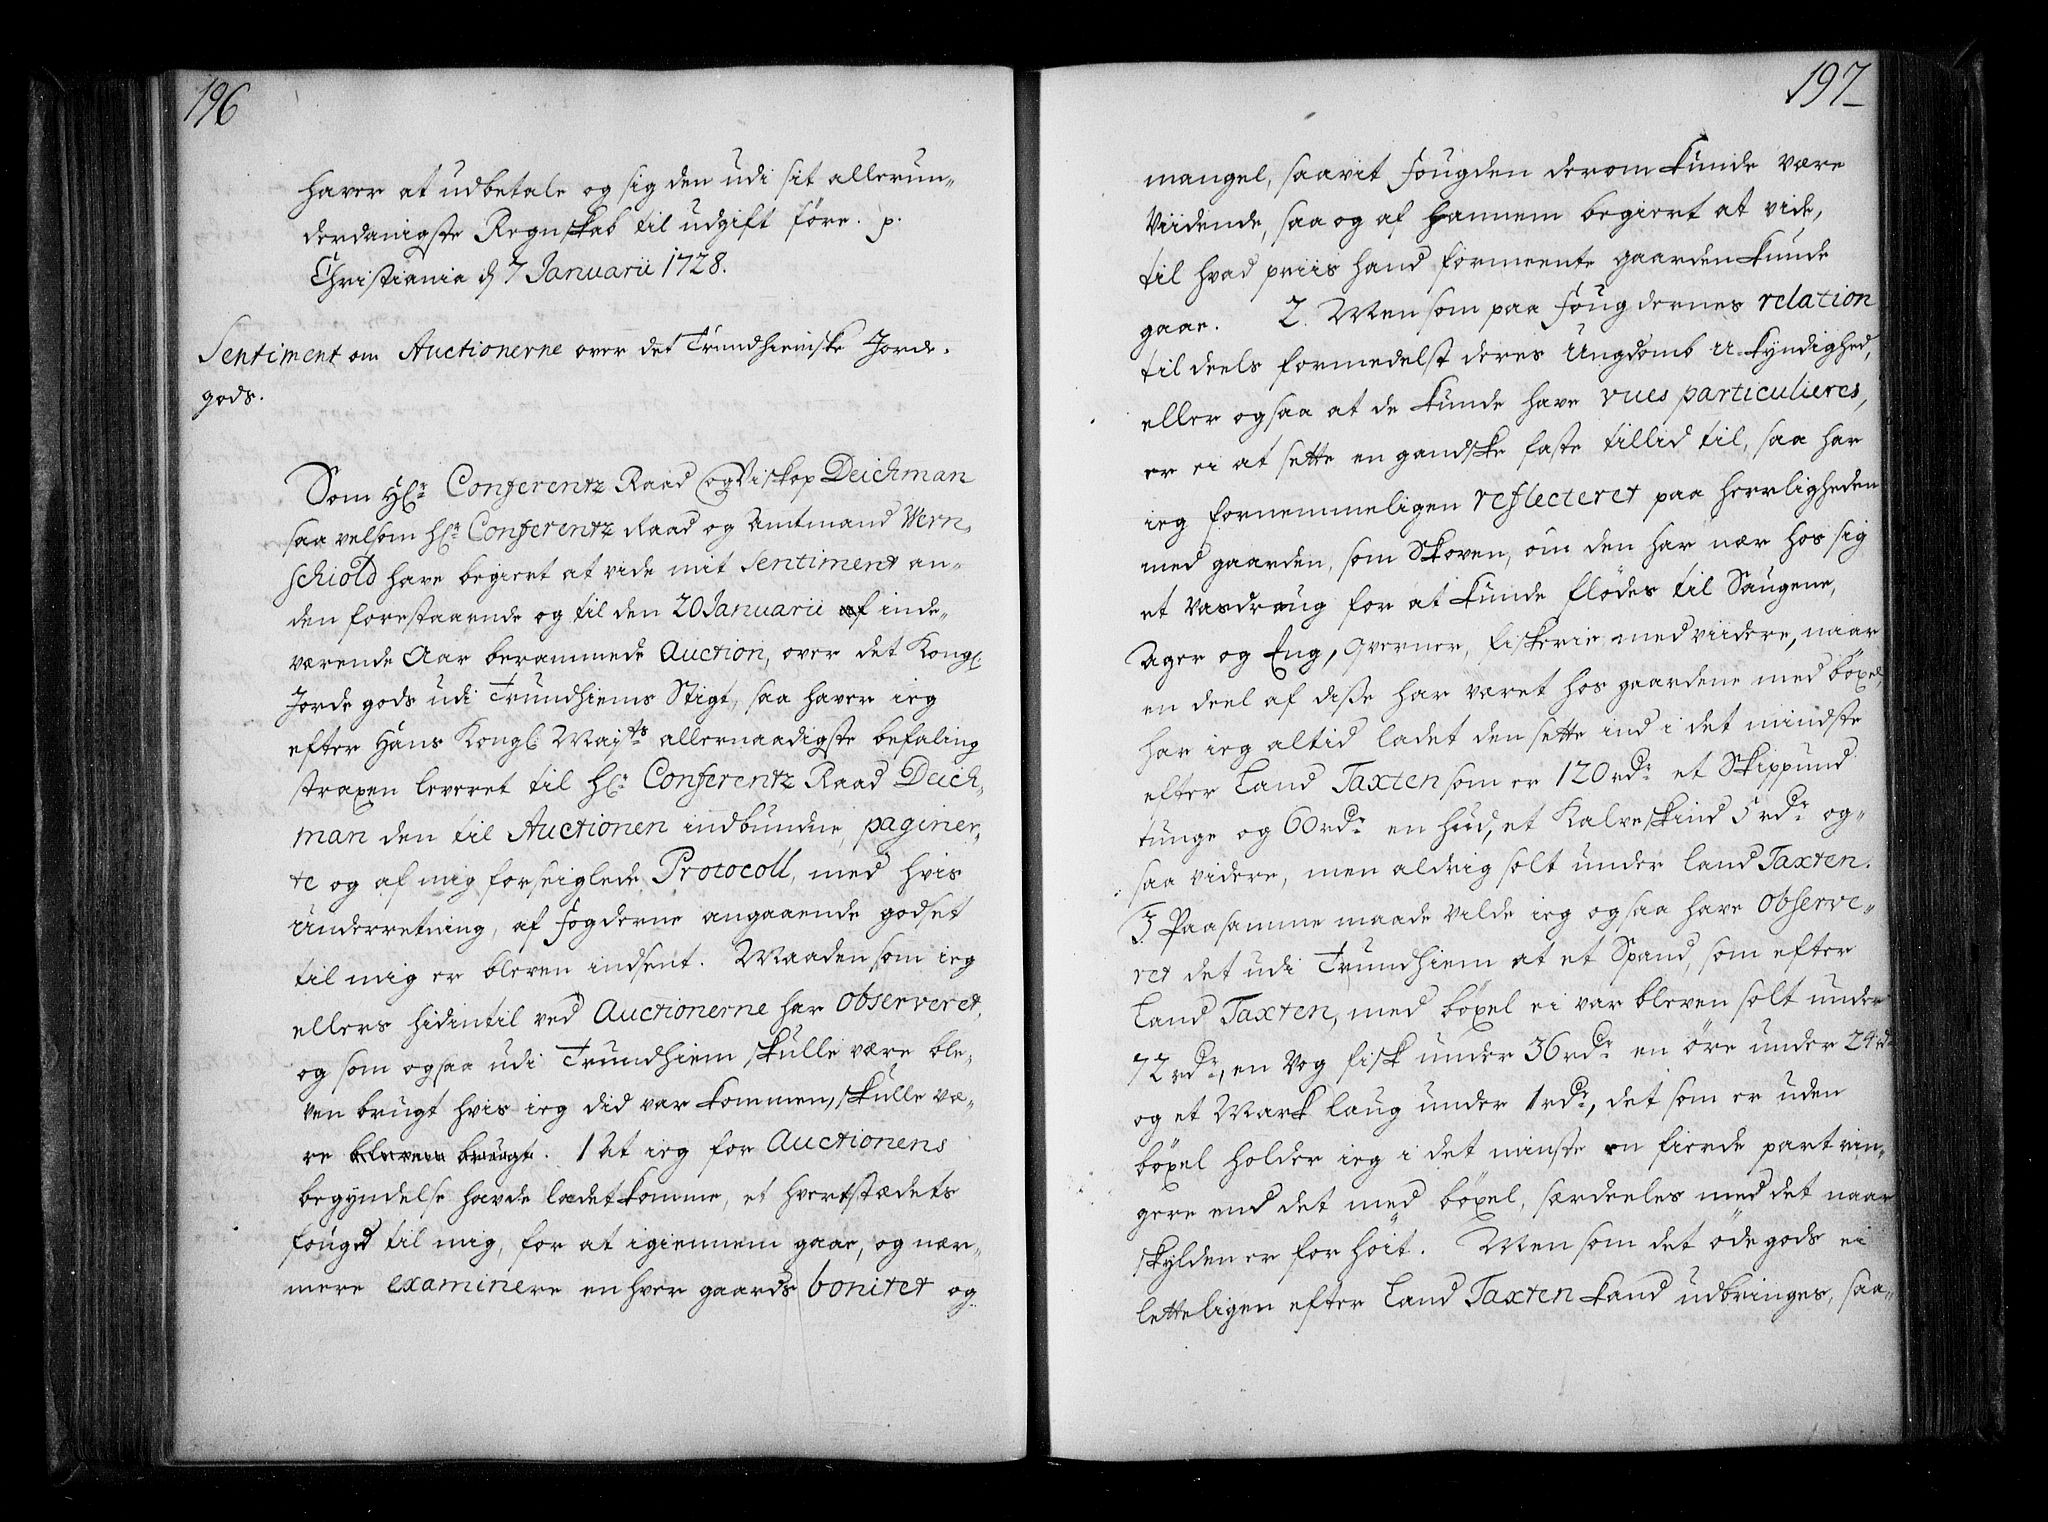 196
haver at udbetale og sig den udi sit allerun„
derdanigste Regnskab til udgift före. p.
Christiania d 7 Januarii 1728.
Sentiment om Auctionerne over det Trundhiemske Jorde-
gods.
Som Hr Conferentz Raad og Biskop Deichman
saavelsom Hr Conferentz Raad og Amtmand Wern„
schiold have begieret at vide mit Sentiment an„
den forestaaende og til den 20 Januarii af inde„
værende Aar berammede Auction, over det Kongl
Jorde gods udi Trundhiems Stigt, saa haver ieg
efter Hans Kongl Mayts allernaadigste befaling
straxen leveret til Hr Conferentz Raad Deich„
man den til Auctionen indbundne, paginer„
te og af mig forseiglede Protocoll, med hvis
Underretning, af fogderne angaaende godset
til mig er bleven indsent. Maaden som ieg
ellers hidintil ved Auctionerne har observeret,
og som ogsaa udi Trundhiem skulle være ble„
ven brugt hvis ieg did var kommen, skulle væ„
re bleven brugt. 1 At ieg for Auctionens
begyndelse havde ladet komme, et hvert stædets
fouged til mig, for at igiennem gaae, og nær„
mere examinere en hver gaards bonitet og
197
mangel, saavit fougden derom kunde være
Viidende, saa og af hannem begiert at vide,
til hvad priis hand formeente gaarden kunde
gaae. 2. Men som paa fougdernes relation
til deels formedelst deres Ungdomb u-kyndighed,
eller ogsaa at de kunde have vues particulieres,
er ei at sette en gandske faste tillid til, saa har
ieg fornemmeligen reflecteret paa herligheden
med gaarden, som Skoven, om den har nær hos sig
et Vasdraug for at kunde flödes til Saugene,
Ager og Eng, Qverner, fiskerie med viidere, naar
en deel af disse har været hos gaardene med böxel,
har ieg altid ladet den sette ind i det mindste
efter Land Taxten som er 120 rdr et Skippund
tunge og 60 rdr en hud, et Kalveskind 5 rdr og„
saa videre, men aldrig solt under land Taxten.
3 Paa samme maade vilde ieg ogsaa have observe„
ret det udi Trundhiem at et Spand, som efter
Land Taxten, med böxel ei var bleven solt under
72 rdr, en Vog fisk under 36 rdr en öre under 24 rdr
og et Mark laug under 1 rdr, det som er uden
böxel holder ieg i det minste en fierde part rin„
gere end det med böxel, særdeeles med det naar
skylden er for höit. Men som det öde gods ei
letteligen efter Land Taxten kand udbringes, saa„